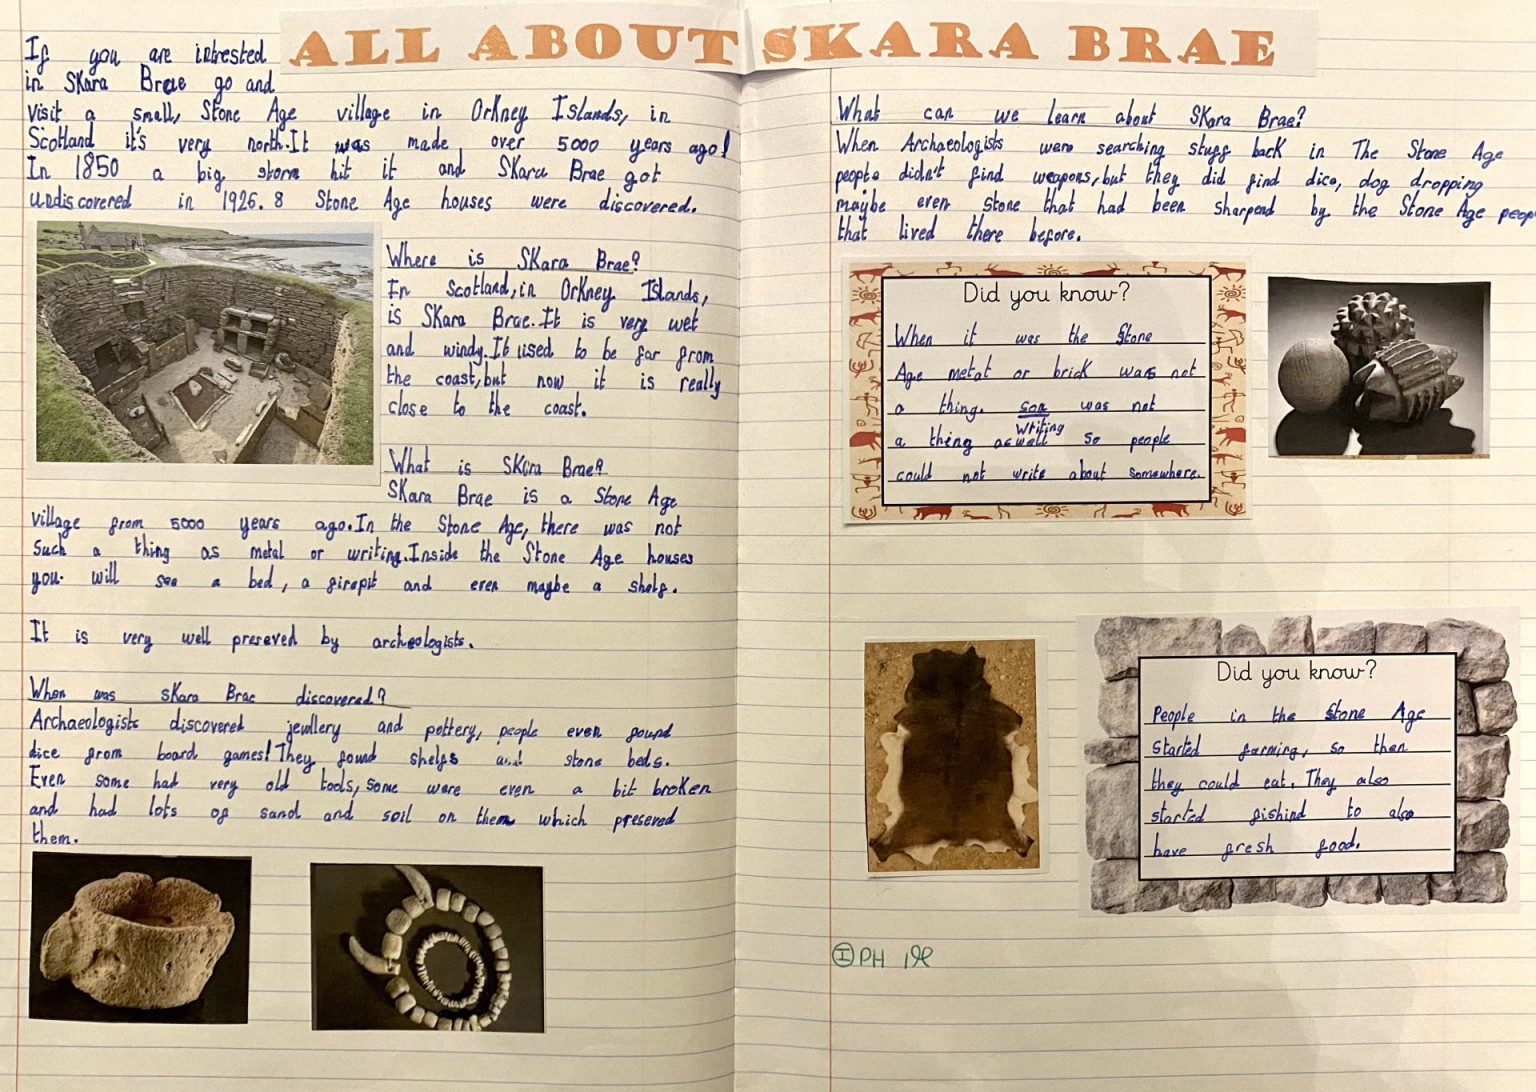 ALL ABOUT SKARA BRAE
If you are intrested
in Skara Brae go and
visit a small, Stone Age village in Orkney Islands, in
Scotland it's very north. It was made over 5000 years ago!
In 1850 a big storm hit it and Skara Brae got
undiscovered in 1926. 8 Stone Age houses were discovered.
Where is Skara Brae?
In Scotland, in Orkney Islands,
is Skara Brae. It is very wet
and windy. It used to be far from
the coast, but now it is really
close to the coast.
What is Skara Brae?
Skara Brae is a Stone Age
village from 5000 years ago. In the Stone Age, there was not
such a thing as metal or writing. Inside the Stone Age houses
you will see a bed, a firepit and even maybe a shelf.
It is very well preseved by archeologists.
When was Skara Brae discovered?
Archaeologists discovered jewllery and pottery, people even found
dice from board games! They found shelfs and stone beds.
Even some had very old tools, some were even a bit broken
and had lots of sand and soil on them which preseved
them.
What can we learn about Skara Brae?
When Archaeologists were searching stuff back in The Stone Age
people didn't find weapons, but they did find dice, dog dropping
maybe even stone that had been sharpend by the Stone Age peop
that lived there before.
Did you know?
When it was the Stone
Age metal or brick was not
a thing. was not
writing
a thing aswell so people
could not write about somewhere.
Did you know?
People in the Stone Age
started farming, so then
they could eat. They also
started fishind to also
have fresh food.
I PH